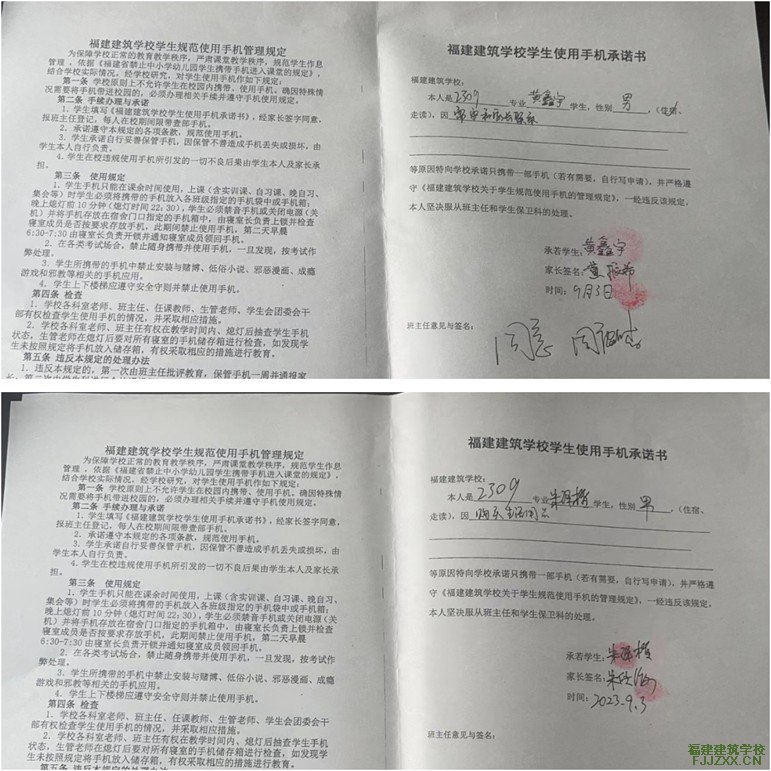 福建建筑学校学生规范使用手机管理规定
为保障学校正常的教育教学秩序，严肃课堂教学秩序，规范学生作息
管理，依据《福建省禁止中小学幼儿园学生携带手机进入课堂的规定》，
结合学校实际情况，经学校研究，对学生使用手机作如下规定：
第一条 学校原则上不允许学生在校园内携带、使用手机、确因特殊情
况需要将手机带进校园的，必须办理相关手续并遵守手机使用规定。
第二条 手续办理与承诺
1. 学生填写《福建建筑学校学生使用手机承诺书》，经家长签字同意，
报班主任登记，每人在校期间限带壹部手机。
2. 承诺遵守本规定的各项条款，规范使用手机。
3. 学生承诺自行妥善保管手机，因保管不善造成手机丢失或损坏，由
学生本人自行负责。
4. 学生在校违规使用手机所引发的一切不良后果由学生本人及家长承
担。
第三条 使用规定
1. 学生手机只能在课余时间使用，上课（含实训课、自习课、晚自习、
集会等）时学生必须将携带的手机放入各班级指定的手机袋中或手机箱；
晚上熄灯前10分钟（熄灯时间22：30），学生必须禁音手机或关闭电源（关
机）并将手机存放在宿舍门口指定的手机箱中，由寝室长负责上锁并检查
寝室成员是否按要求存放手机，此期间禁止使用手机，第二天早晨
6:30-7:30由寝室长负责开锁并通知寝室成员领回手机。
2. 在各类考试场合，禁止随身携带并使用手机，一旦发现，按考试作
弊处理。
3. 学生所携带的手机中禁止安装与赌博、低俗小说、邪恶漫画、成瘾
游戏和邪教等相关的手机应用。
4. 学生上下楼梯应遵守安全守则并禁止使用手机。
第四条 检查
1. 学校各科室老师、班主任、任课教师、生管老师、学生会团委会干
部有权检查学生使用手机的情况，并采取相应措施。
2. 学校各科室老师、班主任有权在教学时间内、熄灯后抽查学生手机
状态，生管老师在熄灯后要对所有寝室的手机储存箱进行检查，如发现学
生未按照规定将手机放入储存箱，有权采取相应的措施进行教育。
第五条 违反本规定的处理办法
1. 违反本规定的，第一次由班主任批评教育，保管手机一周并通报家
福建建筑学校学生使用手机承诺书
福建建筑学校：
本人是 2309 专业 黄鑫宇 学生，性别 男 ，（住宿、
走读），因
等原因特向学校承诺只携带一部手机（若有需要，自行写申请），并严格遵
守《福建建筑学校关于学生规范使用手机的管理规定》，一经违反该规定，
本人坚决服从班主任和学生保卫科的处理。
承若学生：黄鑫宇
家长签名：
时间：9月3日
班主任意见与签名：
同意
福建建筑学校学生规范使用手机管理规定
为保障学校正常的教育教学秩序，严肃课堂教学秩序，规范学生作息
管理，依据《福建省禁止中小学幼儿园学生携带手机进入课堂的规定》，
结合学校实际情况，经学校研究，对学生使用手机作如下规定：
第一条 学校原则上不允许学生在校园内携带、使用手机、确因特殊情
况需要将手机带进校园的，必须办理相关手续并遵守手机使用规定。
第二条 手续办理与承诺
1. 学生填写《福建建筑学校学生使用手机承诺书》，经家长签字同意，
报班主任登记，每人在校期间限带壹部手机。
2. 承诺遵守本规定的各项条款，规范使用手机。
3. 学生承诺自行妥善保管手机，因保管不善造成手机丢失或损坏，由
学生本人自行负责。
4. 学生在校违规使用手机所引发的一切不良后果由学生本人及家长承
担。
第三条 使用规定
1. 学生手机只能在课余时间使用，上课（含实训课、自习课、晚自习、
集会等）时学生必须将携带的手机放入各班级指定的手机袋中或手机箱；
晚上熄灯前10分钟（熄灯时间22：30），学生必须禁音手机或关闭电源（关
机）并将手机存放在宿舍门口指定的手机箱中，由寝室长负责上锁并检查
寝室成员是否按要求存放手机，此期间禁止使用手机，第二天早晨
6:30-7:30由寝室长负责开锁并通知寝室成员领回手机。
2. 在各类考试场合，禁止随身携带并使用手机，一旦发现，按考试作
弊处理。
3. 学生所携带的手机中禁止安装与赌博、低俗小说、邪恶漫画、成瘾
游戏和邪教等相关的手机应用。
4. 学生上下楼梯应遵守安全守则并禁止使用手机。
第四条 检查
1. 学校各科室老师、班主任、任课教师、生管老师、学生会团委会干
部有权检查学生使用手机的情况，并采取相应措施。
2. 学校各科室老师、班主任有权在教学时间内、熄灯后抽查学生手机
状态，生管老师在熄灯后要对所有寝室的手机储存箱进行检查，如发现学
生未按照规定将手机放入储存箱，有权采取相应的措施进行教育。
福建建筑学校学生使用手机承诺书
福建建筑学校：
本人是 2309 专业 学生，性别 男 ，（住宿、
走读），因
等原因特向学校承诺只携带一部手机（若有需要，自行写申请），并严格遵
守《福建建筑学校关于学生规范使用手机的管理规定》，一经违反该规定，
本人坚决服从班主任和学生保卫科的处理。
承若学生：
家长签名：
时间：2023.9.3
班主任意见与签名：
福建建筑学校
FJJZXX.CN